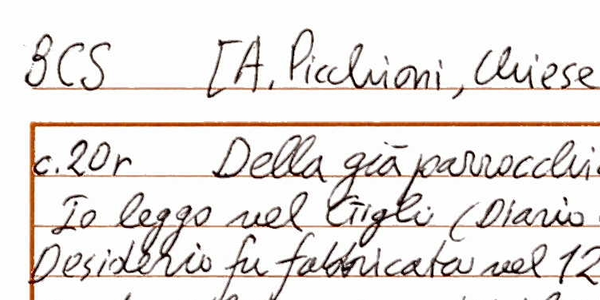 BCS [A. Picchioni, Chiese
c.20r Della già parrocchi
Io leggo nel Gigli (Diario
Desiderio fu fabbricata nel 12